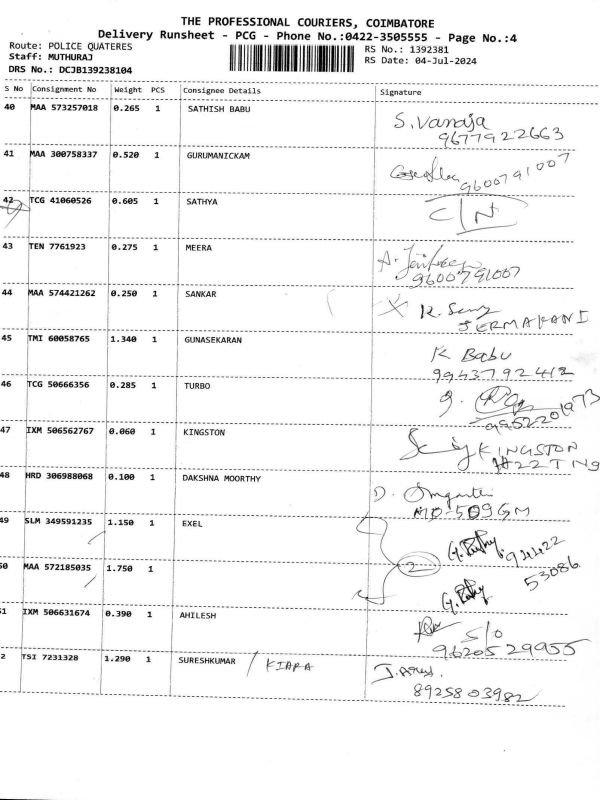 THE PROFESSIONAL COURIERS, COIMBATORE
Delivery Runsheet - PCG - Phone No.:0422-3505555 - Page No.:4
Route: POLICE QUATERES
RS No.: 1392381
Staff: MUTHURAJ
RS Date: 04-Jul-2024
DRS No.: DCJB139238104
S No Consignment No Weight PCS Consignee Details Signature
40 MAA 573257018 0.265 1 SATHISH BABU S. Vanaja
9677922663
41 MAA 300758337 0.520 1 GURUMANICKAM
9600791007
42 TCG 41060526 0.605 1 SATHYA C/N
43 TEN 7761923 0.275 1 MEERA A.
9600791007
44 MAA 574421262 0.250 1 SANKAR K.
JERMAKANI
45 TMI 60058765 1.340 1 GUNASEKARAN K Babu
9943792412
46 TCG 50666356 0.285 1 TURBO 9.
9952201973
47 IXM 506562767 0.060 1 KINGSTON KINGSTON
48 HRD 306988068 0.100 1 DAKSHNA MOORTHY D.
49 SLM 349591235 1.150 1 EXEL
94422
2
50 MAA 572185035 1.750 1
53086
51 IXM 506631674 0.390 1 AHILESH S/o
9620529955
2 TSI 7231328 1.290 1 SURESHKUMAR / KIARA J.
8925803982